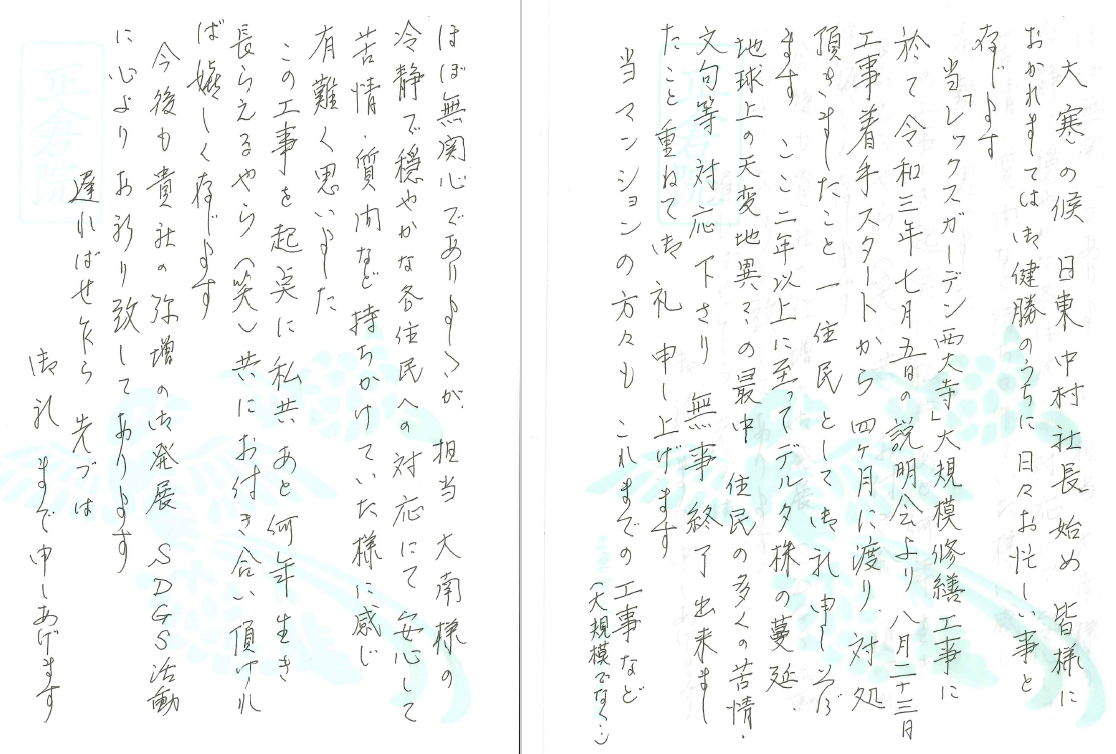 大寒の候 日東中村社長始め 皆様に
おかれましては御健勝のうちに日々お忙しい事と
存じます
当「レックスガーデン西大寺」大規模修繕工事に
於て 令和三年七月五日の説明会より八月二十三日
工事着手スタートから四ヶ月に渡り 対処
頂きましたこと 一住民として御礼申し上げ
ます ここ二年以上に至ってデルタ株の蔓延
地球上の天変地異々の最中 住民の多くの苦情・
文句等 対応下さり 無事終了出来まし
たこと重ねて御礼申し上げます
当マンションの方々も これまでの工事など
(大規模でなく…)
ほぼ無関心でありましたが、担当 大南様の
冷静で穏やかな各住民への対応にて 安心して
苦情・質問など持ちかけていた様に感じ
有難く思いました
この工事を起点に私共 あと何年生き
長らえるやら(笑) 共にお付き合い頂けれ
ば嬉しく存じます
今後も貴社の弥増の御発展 SDGS活動
に心よりお祈り致してあります
遅ればせ乍ら 先づは
御礼 まで申しあげます
正倉院
正倉院